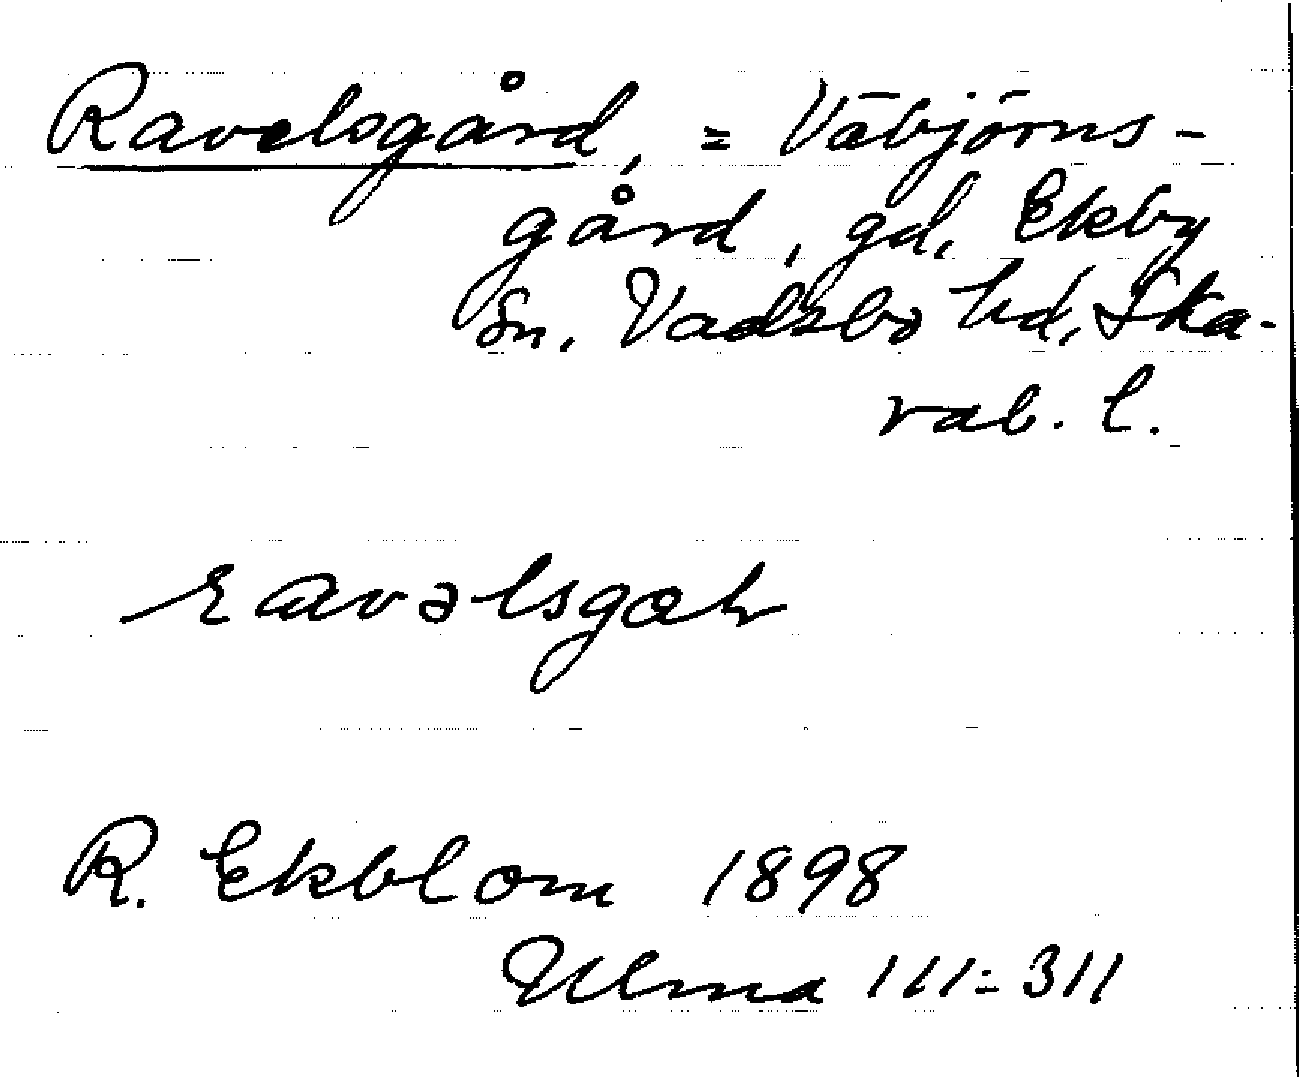 Ravelsgård, = Väbjörns-
gård, gd, Ekby
sn. Vadsbo hd, Ska-
rab. l.
ravəlsgaɽ
R. Ekblom 1898
Ulma 111:311